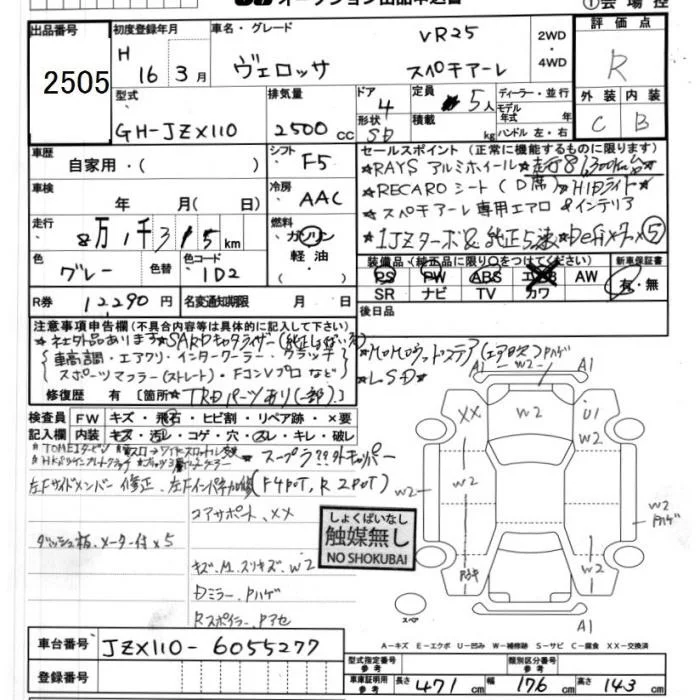 出品番号
2505
初度登録年月
H 16年 3月
車名・グレード
VR25
ヴェロッサ スペチアーレ
2WD
・
4WD
評価点
R
型式
GH-JZX110
排気量
2500 cc
ドア
4
形状
SD
定員
5人
積載
kg
ディーラー・並行
モデル年式 年
ハンドル 左・右
外装 内装
C B
車歴
自家用・( )
シフト
F5
車検
年 月(日)
冷房
AAC
走行
8万1千3 5 km
燃料
ガソリン
軽油
・( )
色
グレー
色替
色コード
1D2
R券
12,290円
名変通知期限 月 日
セールスポイント(正常に機能するものに限ります)
★RAYS アルミホイール★走行81,300km台★
★RECAROシート(D席)★HIDライト★
★スペチアーレ専用エアロ&インテリア
★1JZターボ&純正5速★Defiメーター⑤
装備品(純正品に限り○をつけてください)
PS PW ABS エアB AW
SR ナビ TV カワ
新車保証書
有・無
後日品
注意事項申告欄(不具合内容等は具体的に記入して下さい)
★社外品あります★SARDキャタライザー(純正
車高調・エアクリ・インタークーラー・クラッチ
スポーツマフラー(ストレート)・FコンVプロ など
★LSD★
修復歴 有[箇所★TRDパーツあり(一部)]
検査員 FW キズ・飛石・ヒビ割・リペア跡・×要
記入欄 内装 キズ・汚レ・コゲ・穴・スレ・キレ・破レ
★スープラ
キャリパー
左Fサイドメンバー修正、左Fインパネ
(F4POT、R2POT)
コアサポート、XX
ダッシュ板、メーター付×5
しょくばいなし
触媒無し
NO SHOKUBAI
キズ、凹、スリキズ、W2
Dミラー、Pハゲ
Rスポイラー、Pアセ
A1 W2 A1
XX W2 U1
W2 W2 W2
W2 Pハゲ
W2
A1
スペア
A-キズ E-エクボ U-凹み W-補修跡 S-サビ C-腐食 XX-交換済
車台番号 JZX110-6055277
登録番号
型式指定番号 参考
類別区分番号 参考
車庫証明用 参考
長さ 471cm 幅 176cm 高さ 143cm